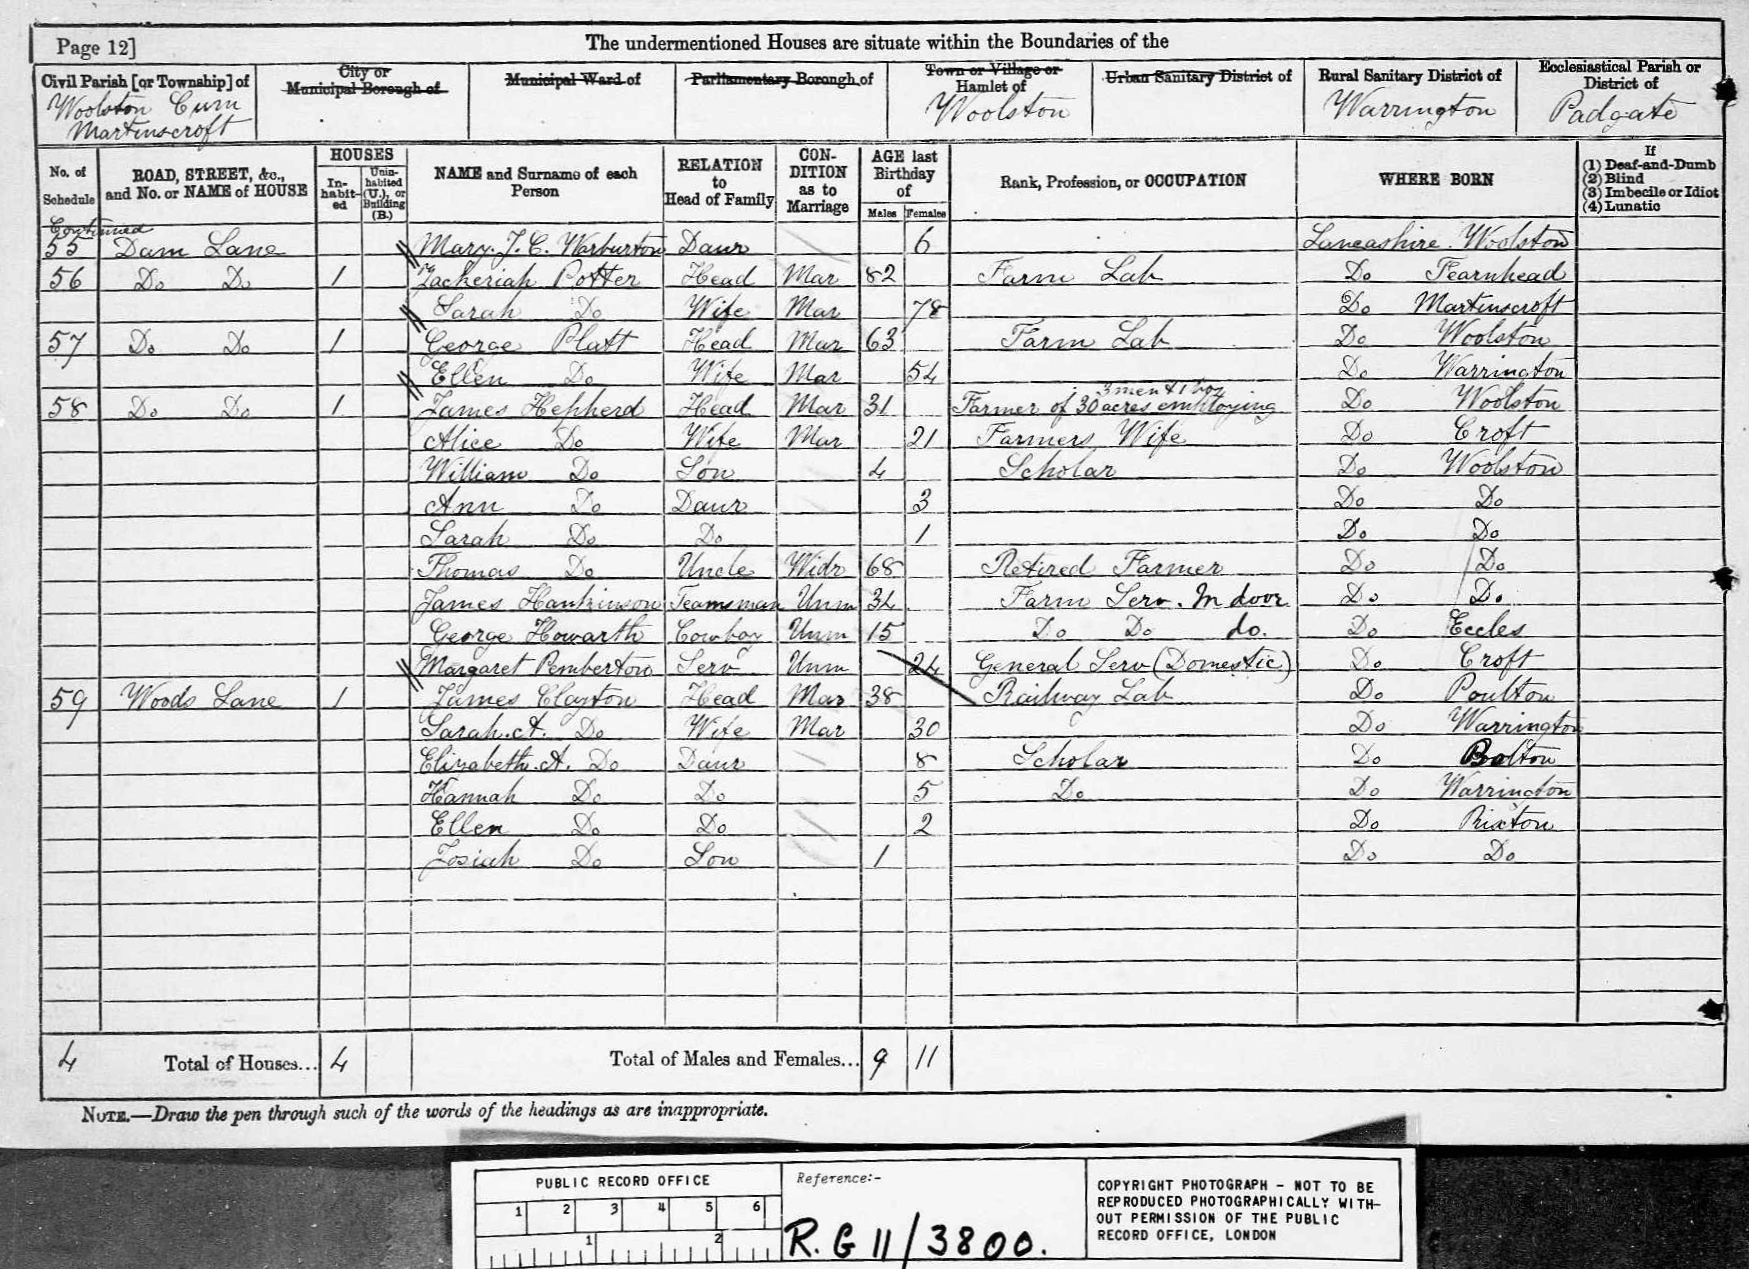 Page 12]
The undermentioned Houses are situate within the Boundaries of the
Civil Parish [or Township] of
City or Municipal Borough of
Municipal Ward of
Parliamentary Borough of
Town or Village or Hamlet of
Urban Sanitary District of
Rural Sanitary District of
Ecclesiastical Parish or District of
Woolston Cum Martinscroft
Woolston
Warrington
Padgate
No. of Schedule
ROAD, STREET, &c., and No. or NAME of HOUSE
HOUSES
In-habit-ed
Unin-habited (U.), or Building (B.)
NAME and Surname of each Person
RELATION to Head of Family
CON-DITION as to Marriage
AGE last Birthday of
Males
Females
Rank, Profession, or OCCUPATION
WHERE BORN
If
(1) Deaf-and-Dumb
(2) Blind
(3) Imbecile or Idiot
(4) Lunatic
Continued
55 Dam Lane Mary. J. C. Warburton Daur 6 Lancashire. Woolston
56 Do Do 1 Zackeriah Potter Head Mar 82 Farm Lab Do Fearnhead
Sarah Do Wife Mar 78 Do Martinscroft
57 Do Do 1 George Platt Head Mar 63 Farm Lab Do Woolston
Ellen Do Wife Mar 54 Do Warrington
3 men & 1 boy
58 Do Do 1 James Hepherd Head Mar 31 Farmer of 30 acres employing Do Woolston
Alice Do Wife Mar 21 Farmers Wife Do Croft
William Do Son 4 Scholar Do Woolston
Ann Do Daur 3 Do Do
Sarah Do Do 1 Do Do
Thomas Do Uncle Widr 68 Retired Farmer Do Do
James Hankinson Teamsman Unm 34 Farm Serv. In door Do Do
George Howarth Cowboy Unm 15 Do Do do. Do Eccles
Margaret Pemberton Serv Unm 24 General Serv (Domestic) Do Croft
59 Woods Lane 1 James Clayton Head Mar 38 Railway Lab Do Poulton
Sarah. A. Do Wife Mar 30 Do Warrington
Elizabeth. A. Do Daur 8 Scholar Do Bolton
Hannah Do Do 5 Do Do Warrington
Ellen Do Do 2 Do Rixton
Josiah Do Son 1 Do Do
4 Total of Houses... 4 Total of Males and Females... 9 11
NOTE.—Draw the pen through such of the words of the headings as are inappropriate.
PUBLIC RECORD OFFICE
1 2 3 4 5 6
1 2
Reference:-
R.G 11/3800.
COPYRIGHT PHOTOGRAPH - NOT TO BE
REPRODUCED PHOTOGRAPHICALLY WITH-
OUT PERMISSION OF THE PUBLIC
RECORD OFFICE, LONDON